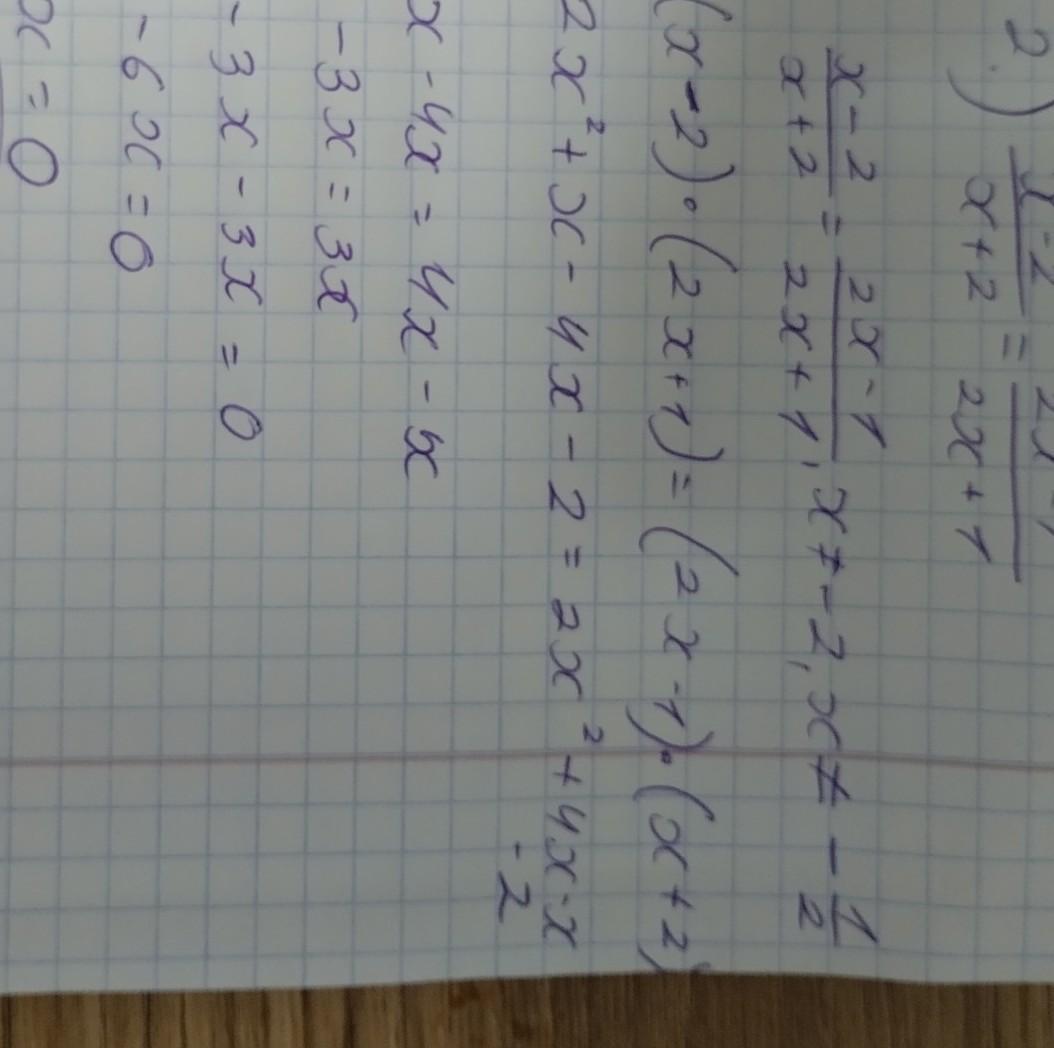 2.) x-2/x+2 = 2x-1/2x+1
x-2/x+2 = 2x-1/2x+1, x≠-2, x≠-1/2
(x-2)·(2x+1)=(2x-1)·(x+2)
2x²+x-4x-2=2x²+4x-x
-2
x-4x=4x-x
-3x=3x
-3x-3x=0
-6x=0
x=0